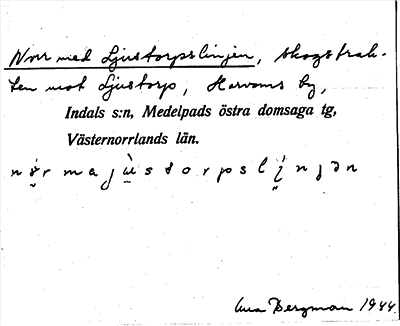 Norr med Ljustorpslinjen, skogstrak-
ten mot Ljustorp, Harvoms by,
Indals s:n, Medelpads östra domsaga tg,
Västernorrlands län.
Bergman 1944.